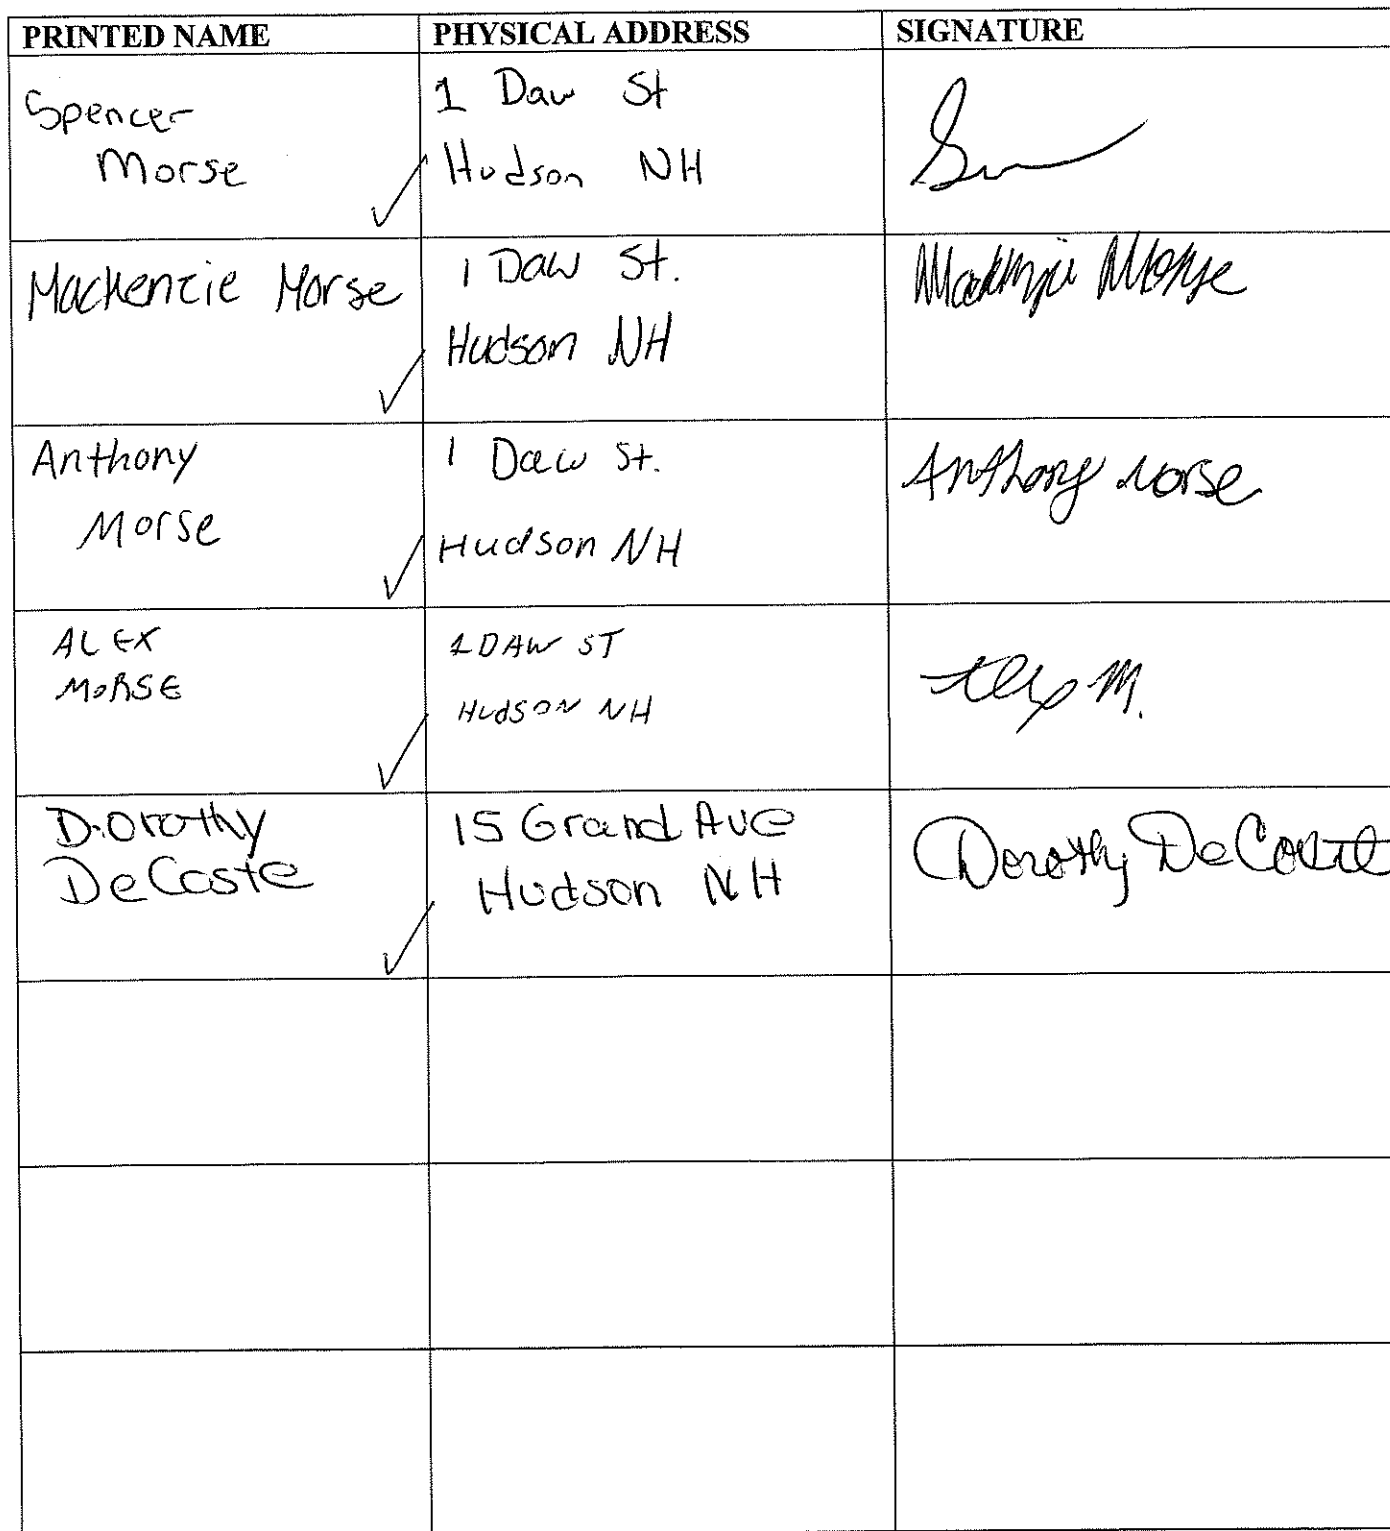 PRINTED NAME PHYSICAL ADDRESS SIGNATURE
Spencer
Morse
1 Daw St
Hudson NH
Mackenzie Morse
1 Daw St.
Hudson NH
Mackenzie Morse
Anthony
Morse
1 Daw St.
Hudson NH
Anthony Morse
ALEX
MORSE
1 DAW ST
HUDSON NH
Alex M.
Dorothy
DeCoste
15 Grand Ave
Hudson NH
Dorothy DeCoste